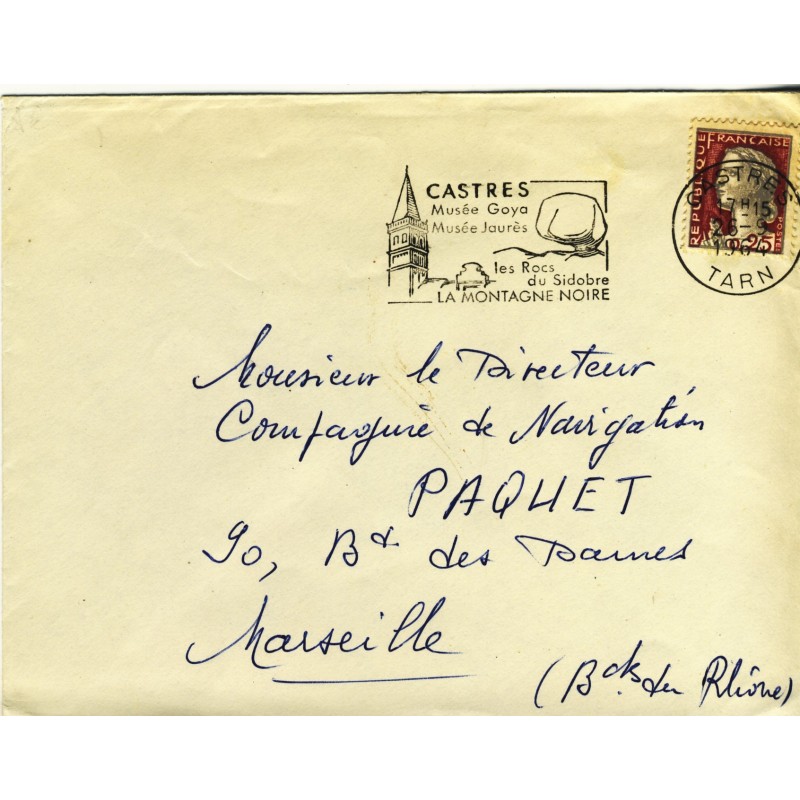 CASTRES
Musée Goya
Musée Jaurès
les Rocs
du Sidobre
LA MONTAGNE NOIRE
REPUBLIQUE FRANCAISE
0,25
POSTES
CASTRES
17H15
1964
TARN
Monsieur le Directeur
Compagnie de Navigation
PAQUET
90, Bd des Dames
Marseille
(Bches du Rhône)